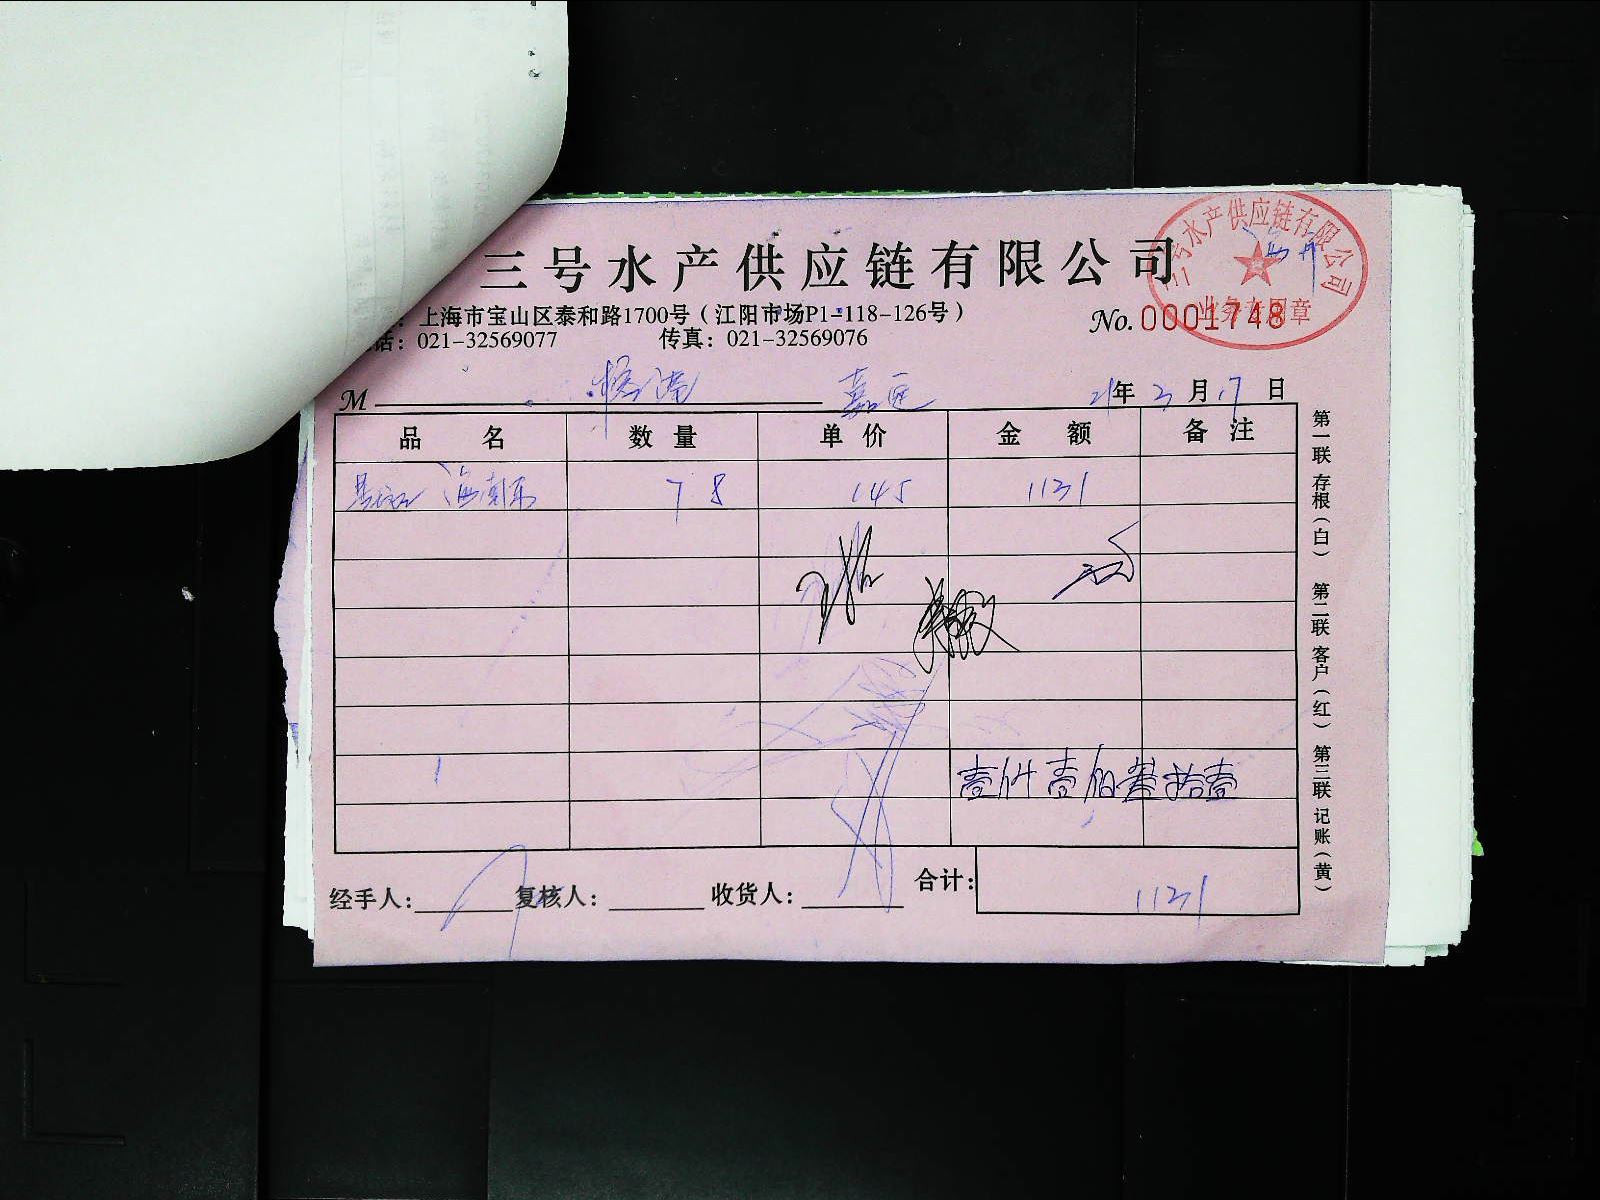 三号水产供应链有限公司
三号水产供应链有限公司
业务专用章
：上海市宝山区泰和路1700号（江阳市场P1-118-126号）
No.0001748
话：021-32569077 传真：021-32569076
M 嘉
21年3月17日
品名 数量 单价 金额 备注
海南东 78 145 1131
壹仟壹佰叁拾壹
合计：1131
经手人： 复核人： 收货人：
第一联 存根（白） 第二联 客户（红） 第三联 记账（黄）